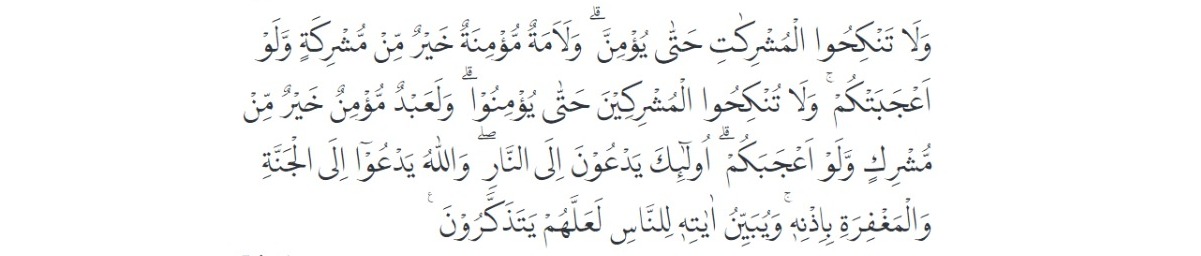 وَلَا تَنْكِحُوا الْمُشْرِكٰتِ حَتّٰى يُؤْمِنَّ ۗ وَلَاَمَةٌ مُّؤْمِنَةٌ خَيْرٌ مِّنْ مُّشْرِكَةٍ وَّلَوْ
اَعْجَبَتْكُمْ ۚ وَلَا تُنْكِحُوا الْمُشْرِكِيْنَ حَتّٰى يُؤْمِنُوْا ۗ وَلَعَبْدٌ مُّؤْمِنٌ خَيْرٌ مِّنْ
مُّشْرِكٍ وَّلَوْ اَعْجَبَكُمْ ۗ اُولٰۤىِٕكَ يَدْعُوْنَ اِلَى النَّارِ ۖ وَاللّٰهُ يَدْعُوْٓا اِلَى الْجَنَّةِ
وَالْمَغْفِرَةِ بِاِذْنِهٖ ۚ وَيُبَيِّنُ اٰيٰتِهٖ لِلنَّاسِ لَعَلَّهُمْ يَتَذَكَّرُوْنَ ࣖ